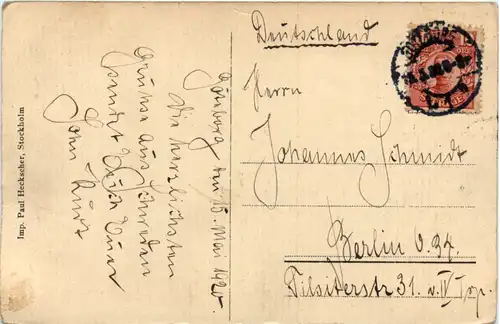 Imp. Paul Heckscher, Stockholm
den 15. Mai 1920.
Die herzlichsten
Grüsse aus Schweden
sendet Euch Euer
Sohn Kurt
Deutschland
Herrn
Johannes Schmidt
Berlin O. 34.
Tilsiterstr. 31. v. IV Trp.
SVERIGE